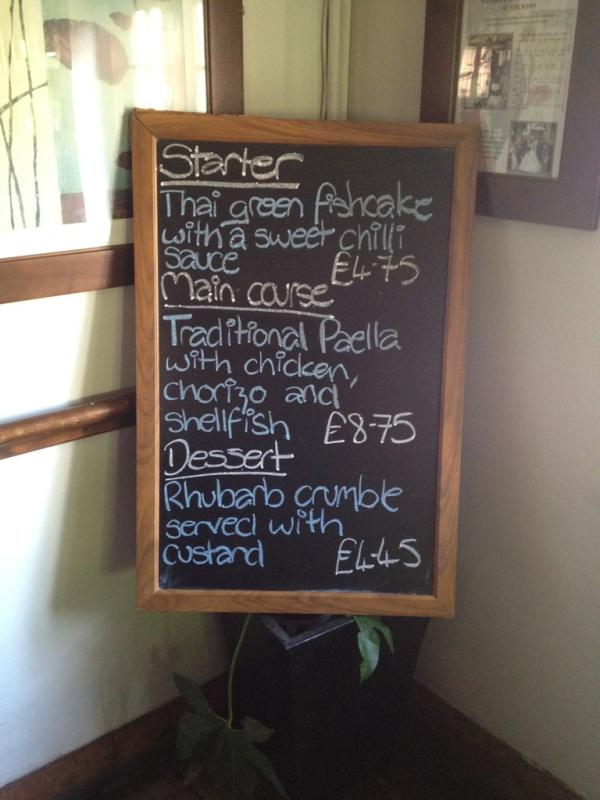 Starter
Thai green fishcake
with a sweet chilli
sauce £4-75
Main course
Traditional Paella
with chicken,
chorizo and
shellfish £8-75
Dessert
Rhubarb crumble
served with
custard £4-45